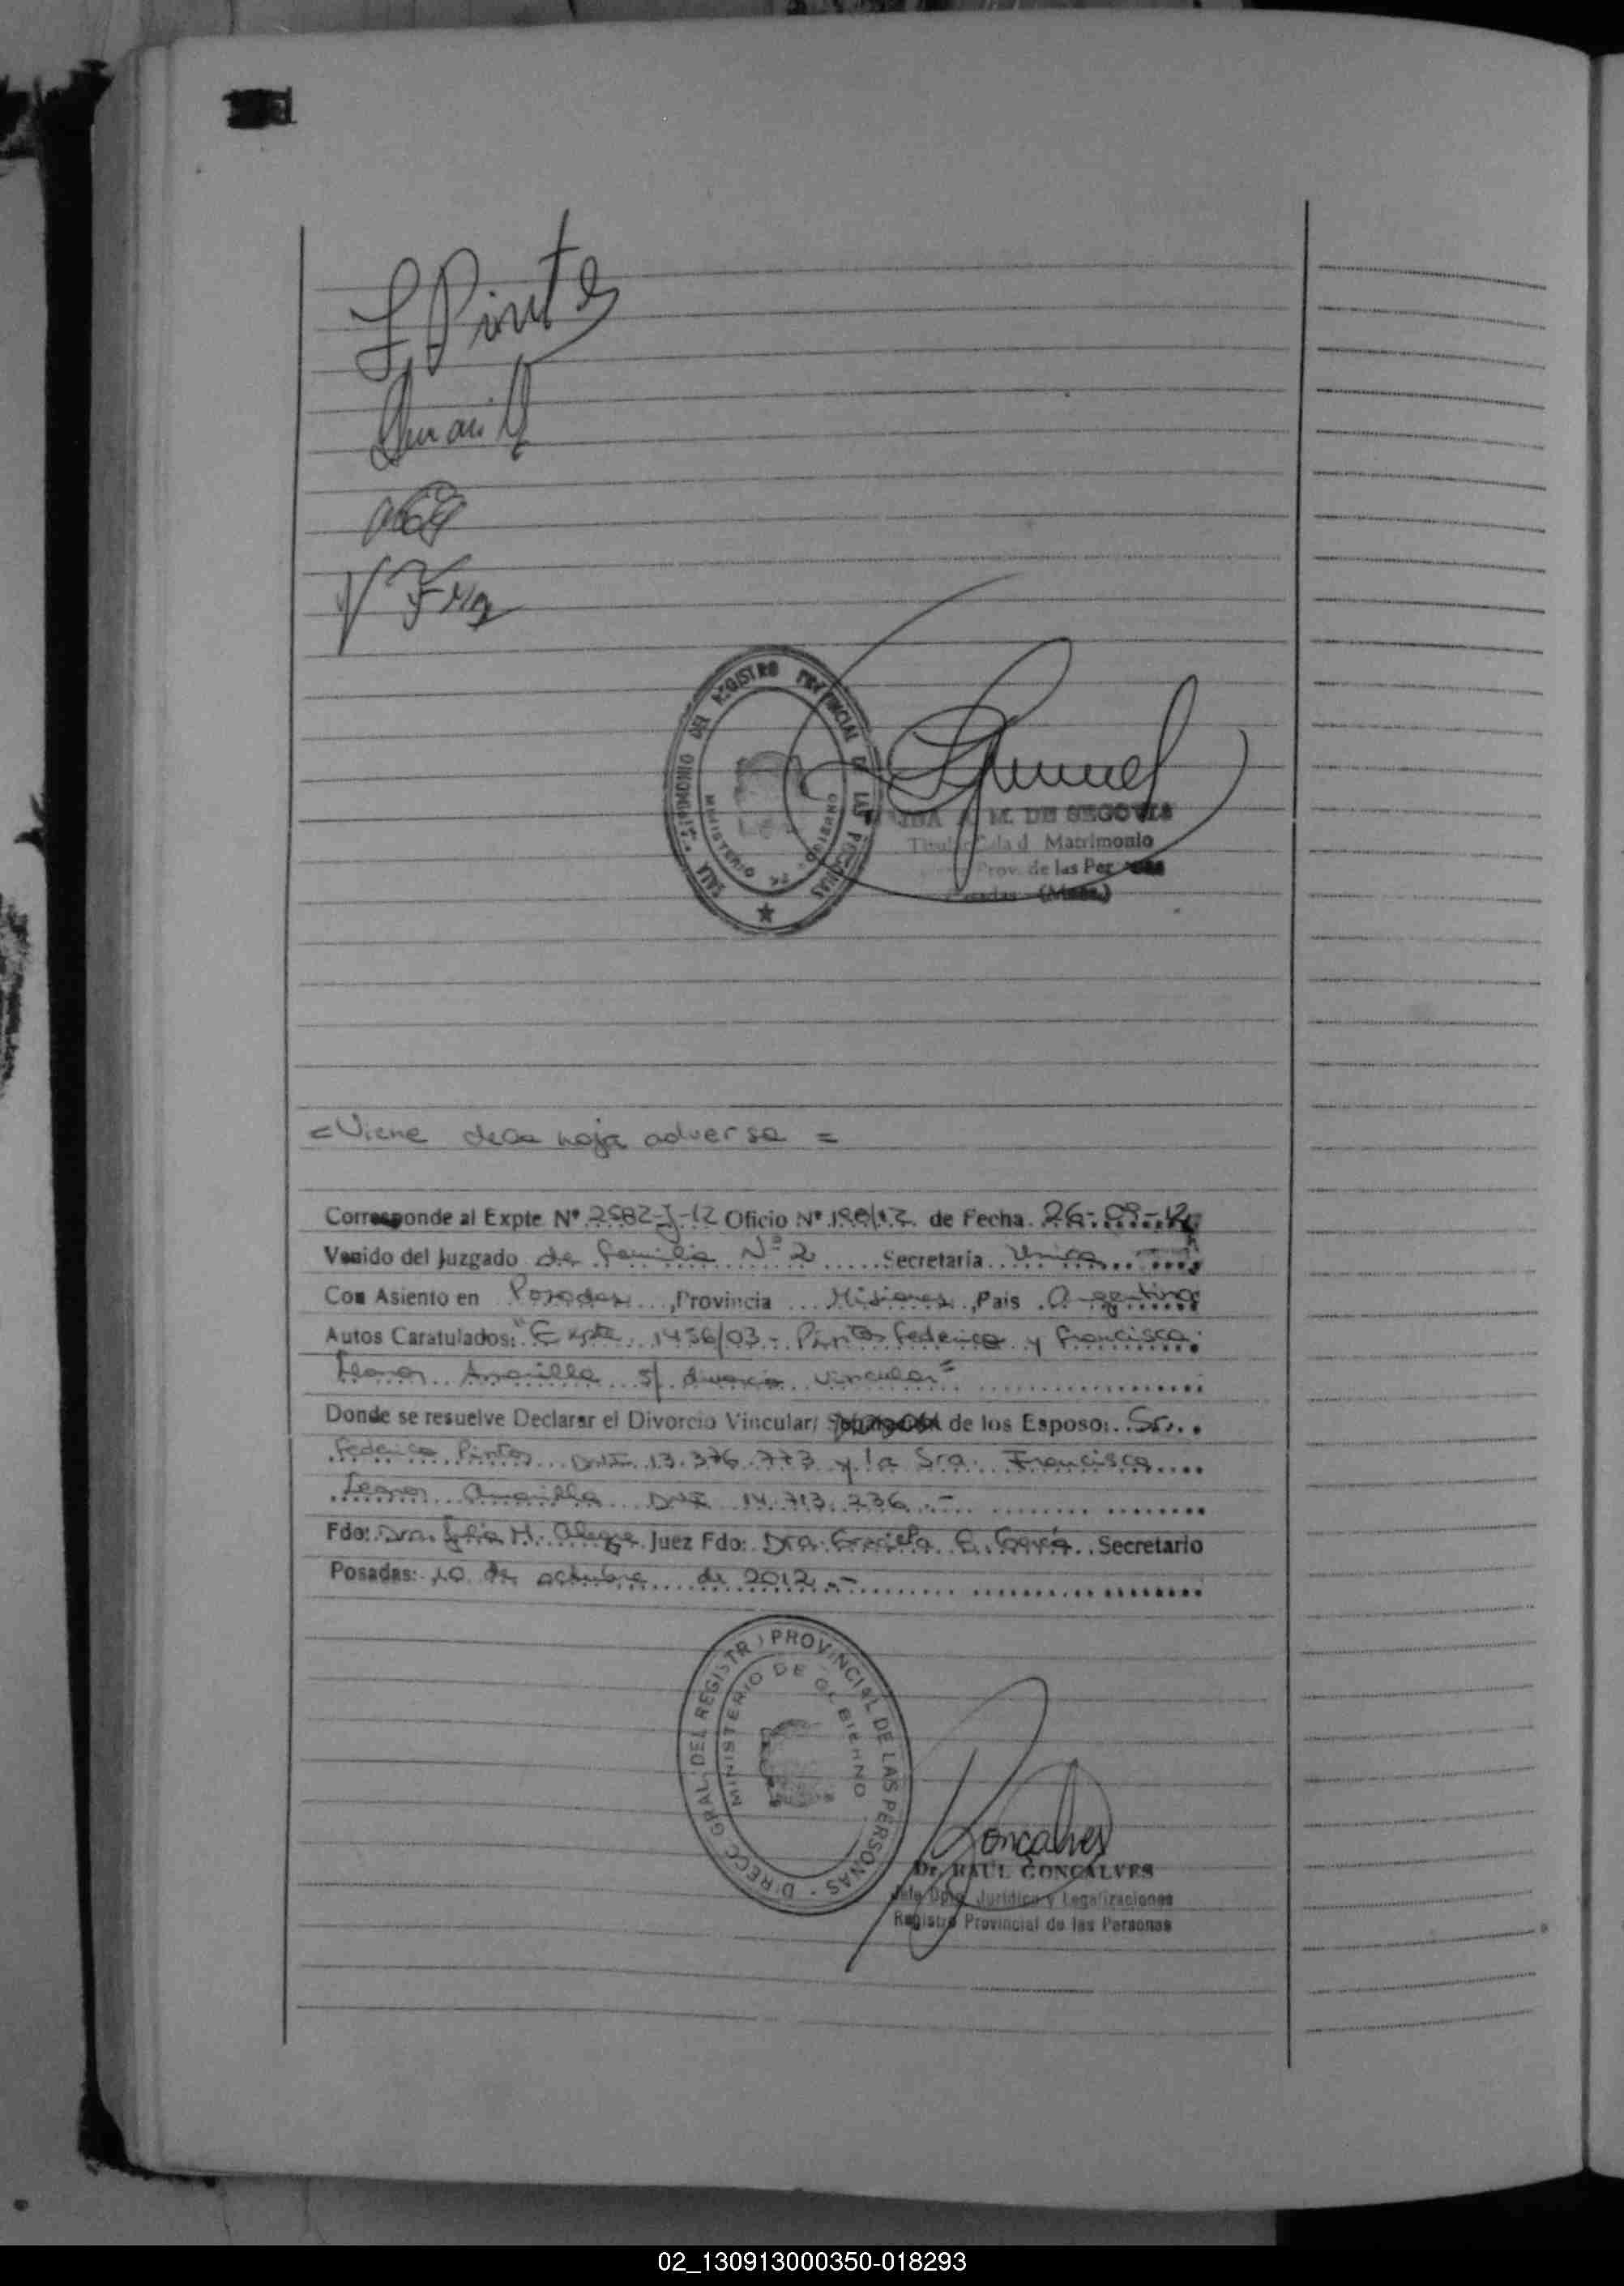 F Pintos
SALA MATRIMONIO DEL REGISTRO PROVINCIAL DE LAS PERSONAS
MINISTERIO DE GOBIERNO
M. DE SEGOVIA
Titular Sala d Matrimonio
Prov. de las Personas
Posadas (Mnes.)
= Viene de la hoja adversa =
Corresponde al Expte Nº 2582-J-12 Oficio Nº 190/12 de Fecha 26-09-12
Venido del Juzgado de familia Nº 2 Secretaría Unica
Con Asiento en Posadas, Provincia Misiones, País Argentina
Autos Caratulados: "Expte. 1456/03 - Pintos Federico y Francisca
Leonor Amarilla s/ divorcio vincular"
Donde se resuelve Declarar el Divorcio Vincular/ de los Esposo: Sr.
Federico Pintos DNI 13.376.773 y la Sra. Francisca
Leonor Amarilla DNI 14.713.236.-
Fdo: Dra. Julia M. Alegre Juez Fdo: Dra. Graciela Secretario
Posadas: 10 de octubre de 2012.-
DIRECC. GRAL. DEL REGISTRO PROVINCIAL DE LAS PERSONAS
MINISTERIO DE GOBIERNO
Goncalves
Dr. RAUL GONCALVES
Jefe Dpto. Jurídico y Legalizaciones
Registro Provincial de las Personas
02_130913000350-018293